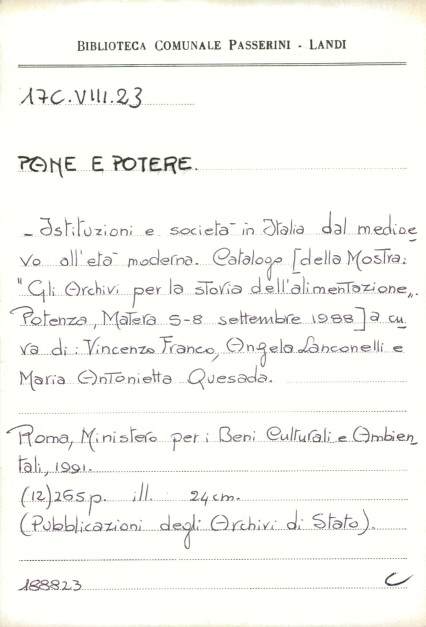 BIBLIOTECA COMUNALE PASSERINI - LANDI
17C.VIII.23
PANE E POTERE.
- Istituzioni e società in Italia dal medioe
vo all'età moderna. Catalogo [della Mostra:
"Gli Archivi per la storia dell'alimentazione„.
Potenza, Matera 5-8 settembre 1988] a cu
ra di: Vincenzo Franco, Angela Lanconelli e
Maria Antonietta Quesada.
Roma, Ministero per i Beni Culturali e Ambien
tali, 1991.
(12)265p. ill. 24cm.
(Pubblicazioni degli Archivi di Stato).
188823 C